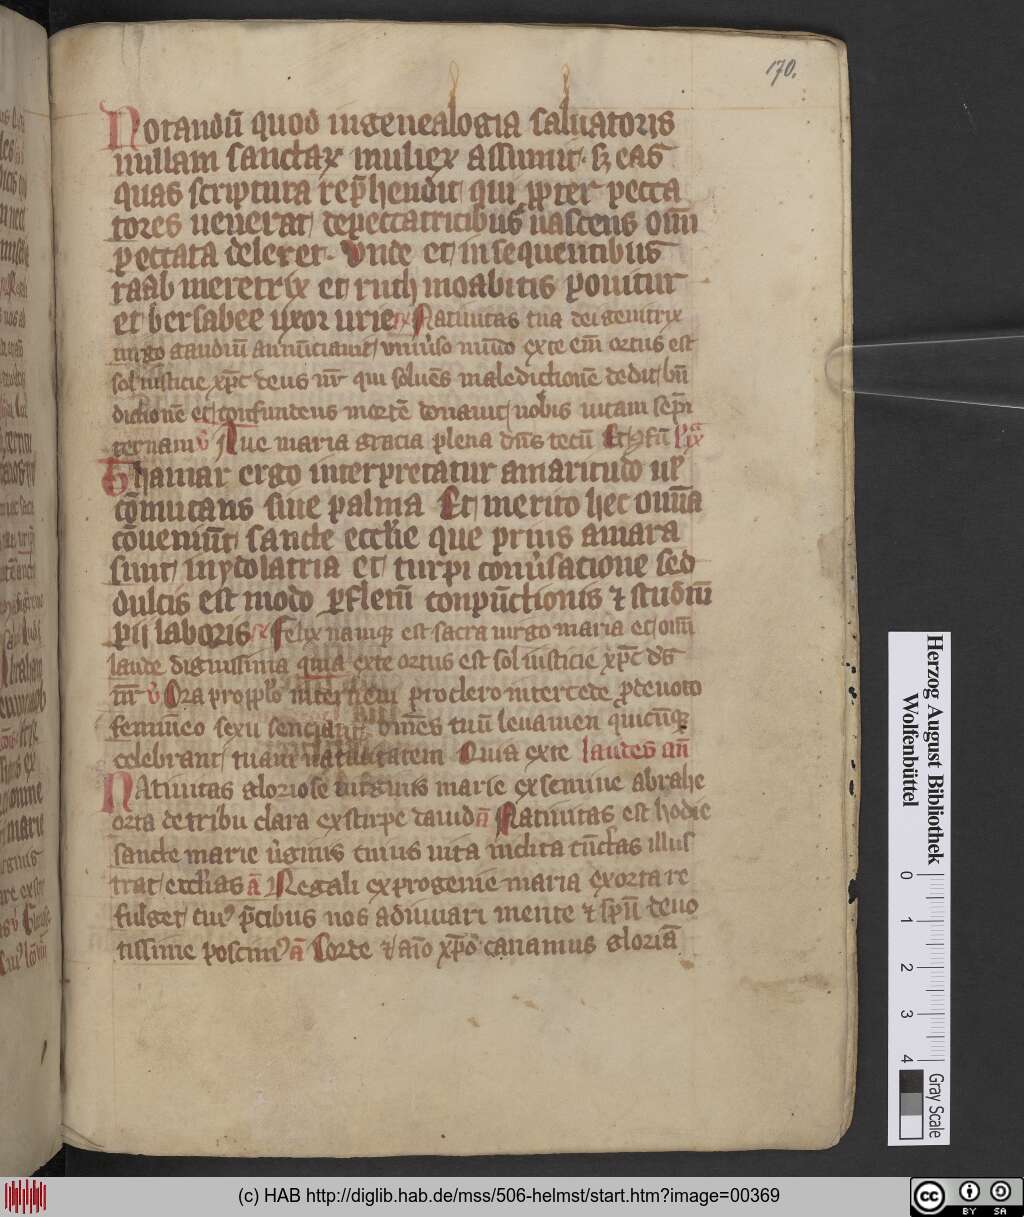 170.
Notandū quod ingenealogia saluatoris
nullam sanctaꝝ mulieꝝ assumit. sꝫ eas
quas scriptura rep̄hendit qui ꝓpter pecca
tores uenerat depeccatricibus nascens om̄
peccata deleret. Vnde et insequentibus
raab meretrix et ruth moabitis ponitur
et bersabee uxor urie Natiuitas tua dei genitrix
uirgo gaudiū annūciauit uniu̾so mūdo exte em̄ ortus est
sol iusticie xp̄c deus nr̄ qui soluēs maledictionē dedit bn̄
dictionē et confundens mortē donauit nobis uitam sēpi
ternam v̾ Aue maria gracia plena dn̄s tecū
Thamar ergo interpretatur amaritudo ul̾
cōmutans siue palma Et merito hec omīa
cōueniūt sancte eccl̄ie que prius amara
sunt inydolatria et turpi conu̾sacione sed
dulcis est modo ꝑ fletū conpūctionis ⁊ studiū
pii laboris Felix namqꝫ est sacra uirgo maria et om̄
laude dignissima quia exte ortus est sol iusticie xp̄c ds̄
nr̄ v̾ Ora pro ppl̄o interueni pro clero intercede ꝓ deuoto
femineo sexu senciant om̄es tuū leuamen quicūqꝫ
celebrant tuam natiuitatem Quia exte laudes an̄
Natiuitas gloriose uirginis marie exsemine abrahe
orta de tribu clara exstirpe dauid an̄ Natiuitas est hodie
sancte marie u̾ginis cuius uita inclita cūctas illus
trat eccl̄ias ā Regali exprogenie maria exorta re
fulget cui᾽ p̄cibus nos adiuuari mente ⁊ sp̄u deuo
tissime poscim᾽ ā Corde ⁊ aīo xp̄o canamus gloriā
Herzog August Bibliothek
Wolfenbüttel
0 1 2 3 4
Gray Scale
(c) HAB http://diglib.hab.de/mss/506-helmst/start.htm?image=00369
cc BY SA